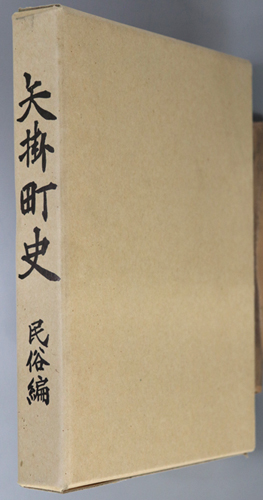 矢掛町史
民俗編